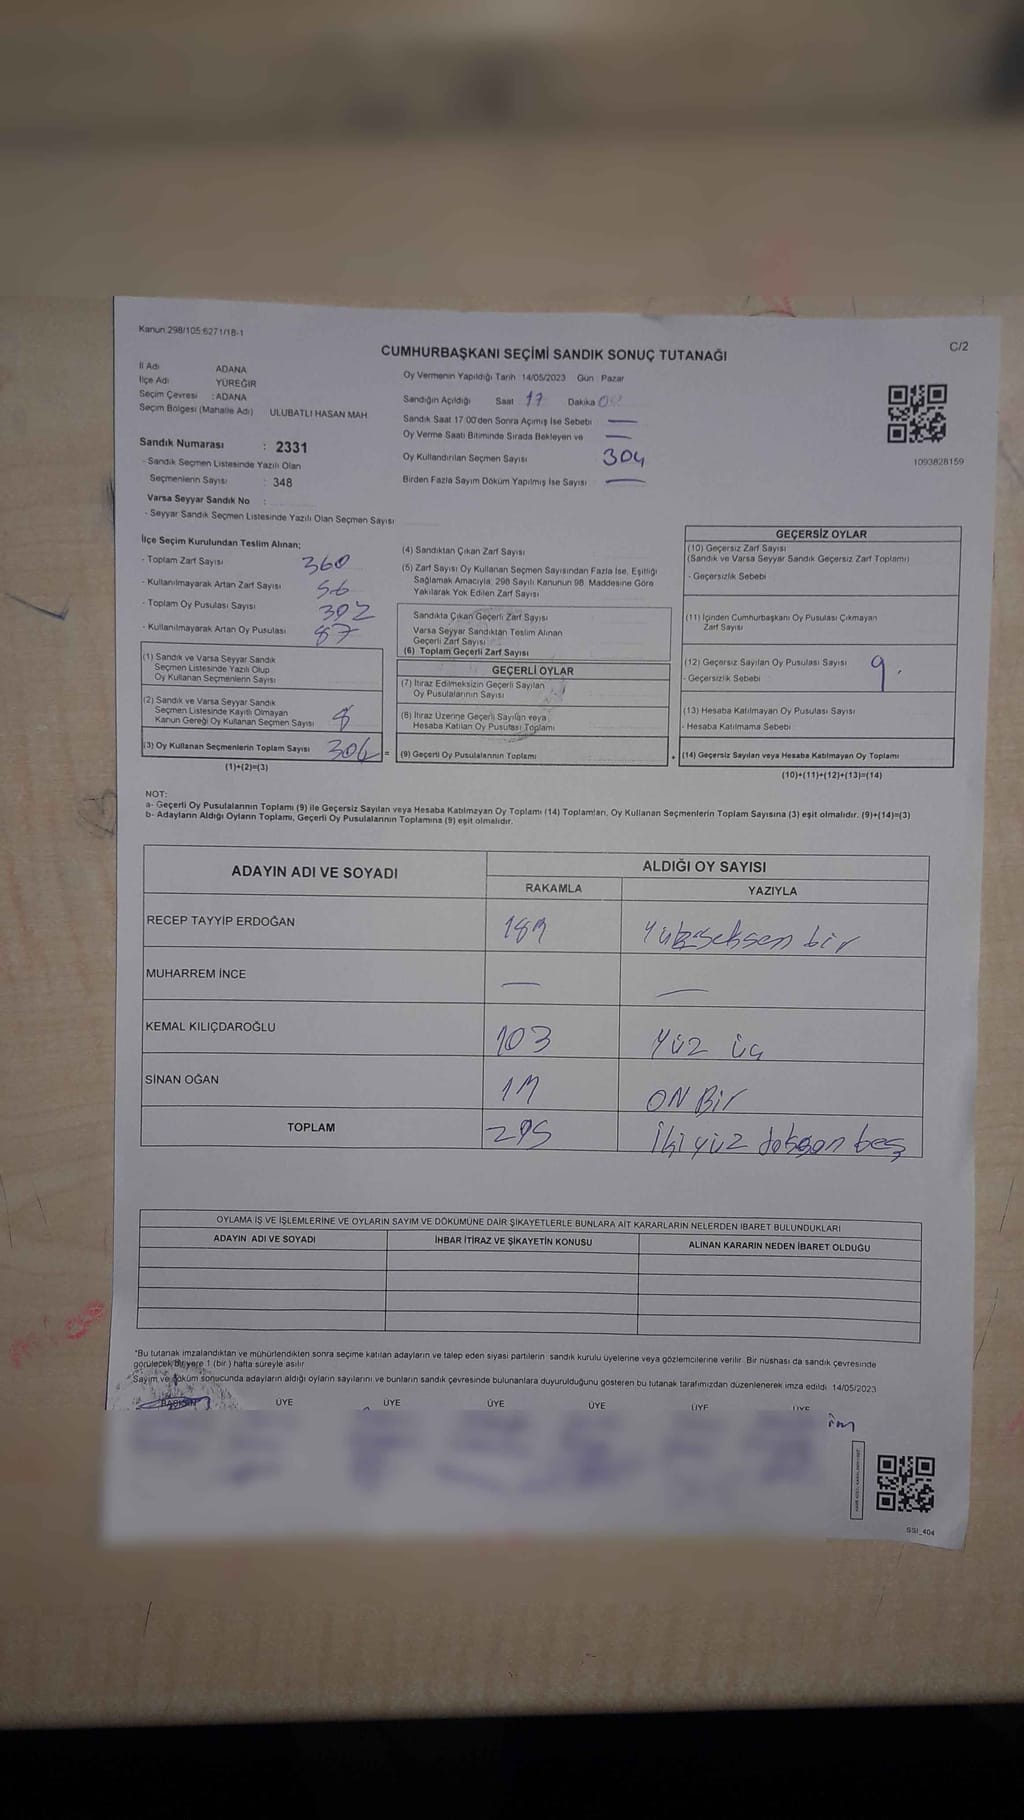 Kanun:298/105:6271/18-1
C/2
CUMHURBAŞKANI SEÇİMİ SANDIK SONUÇ TUTANAĞI
İl Adı : ADANA
İlçe Adı YÜREĞİR
Seçim Çevresi : ADANA
Seçim Bölgesi (Mahalle Adı) ULUBATLI HASAN MAH.
Sandık Numarası : 2331
- Sandık Seçmen Listesinde Yazılı Olan
Seçmenlerin Sayısı : 348
Varsa Seyyar Sandık No :
- Seyyar Sandık Seçmen Listesinde Yazılı Olan Seçmen Sayısı
Oy Vermenin Yapıldığı Tarih : 14/05/2023 Gün : Pazar
Sandığın Açıldığı Saat : 17 Dakika
Sandık Saat 17:00'den Sonra Açımış İse Sebebi —
Oy Verme Saati Bitiminde Sırada Bekleyen ve —
Oy Kullandırılan Seçmen Sayısı 304
Birden Fazla Sayım Döküm Yapılmış İse Sayısı —
1093828159
İlçe Seçim Kurulundan Teslim Alınan;
- Toplam Zarf Sayısı 360
- Kullanılmayarak Artan Zarf Sayısı 56
- Toplam Oy Pusulası Sayısı
- Kullanılmayarak Artan Oy Pusulası 87
(1) Sandık ve Varsa Seyyar Sandık
Seçmen Listesinde Yazılı Olup
Oy Kullanan Seçmenlerin Sayısı
(2) Sandık ve Varsa Seyyar Sandık
Seçmen Listesinde Kayıtlı Olmayan
Kanun Gereği Oy Kullanan Seçmen Sayısı 8
(3) Oy Kullanan Seçmenlerin Toplam Sayısı 304 =
(1)+(2)=(3)
(4) Sandıktan Çıkan Zarf Sayısı
(5) Zarf Sayısı Oy Kullanan Seçmen Sayısından Fazla İse, Eşitliği
Sağlamak Amacıyla, 298 Sayılı Kanunun 98. Maddesine Göre
Yakılarak Yok Edilen Zarf Sayısı
Sandıkta Çıkan Geçerli Zarf Sayısı
Varsa Seyyar Sandıktan Teslim Alınan
Geçerli Zarf Sayısı
(6) Toplam Geçerli Zarf Sayısı
GEÇERLİ OYLAR
(7) İtiraz Edilmeksizin Geçerli Sayılan
Oy Pusulalarının Sayısı
(8) İtiraz Üzerine Geçerli Sayılan veya
Hesaba Katılan Oy Pusulası Toplamı
(9) Geçerli Oy Pusulalarının Toplamı +
GEÇERSİZ OYLAR
(10) Geçersiz Zarf Sayısı
(Sandık ve Varsa Seyyar Sandık Geçersiz Zarf Toplamı)
- Geçersizlik Sebebi
(11) İçinden Cumhurbaşkanı Oy Pusulası Çıkmayan
Zarf Sayısı
(12) Geçersiz Sayılan Oy Pusulası Sayısı 9.
- Geçersizlik Sebebi
(13) Hesaba Katılmayan Oy Pusulası Sayısı
- Hesaba Katılmama Sebebi
(14) Geçersiz Sayılan veya Hesaba Katılmayan Oy Toplamı
(10)+(11)+(12)+(13)=(14)
NOT:
a- Geçerli Oy Pusulalarının Toplamı (9) ile Geçersiz Sayılan veya Hesaba Katılmayan Oy Toplamı (14) Toplamları, Oy Kullanan Seçmenlerin Toplam Sayısına (3) eşit olmalıdır. (9)+(14)=(3)
b- Adayların Aldığı Oyların Toplamı, Geçerli Oy Pusulalarının Toplamına (9) eşit olmalıdır.
ADAYIN ADI VE SOYADI ALDIĞI OY SAYISI
RAKAMLA YAZIYLA
RECEP TAYYİP ERDOĞAN 181 Yüzseksen bir
MUHARREM İNCE — —
KEMAL KILIÇDAROĞLU 103 Yüz üç
SİNAN OĞAN 11 ON Bir
TOPLAM 295 İki yüz doksan beş
OYLAMA İŞ VE İŞLEMLERİNE VE OYLARIN SAYIM VE DÖKÜMÜNE DAİR ŞİKAYETLERLE BUNLARA AİT KARARLARIN NELERDEN İBARET BULUNDUKLARI
ADAYIN ADI VE SOYADI İHBAR İTİRAZ VE ŞİKAYETİN KONUSU ALINAN KARARIN NEDEN İBARET OLDUĞU
*Bu tutanak imzalandıktan ve mühürlendikten sonra seçime katılan adayların ve talep eden siyasi partilerin sandık kurulu üyelerine veya gözlemcilerine verilir. Bir nüshası da sandık çevresinde
görülecek bir yere 1 (bir) hafta süreyle asılır.
*Sayım ve döküm sonucunda adayların aldığı oyların sayılarını ve bunların sandık çevresinde bulunanlara duyurulduğunu gösteren bu tutanak tarafımızdan düzenlenerek imza edildi. 14/05/2023
BAŞKAN ÜYE ÜYE ÜYE ÜYE ÜYE ÜYE
SSI_404